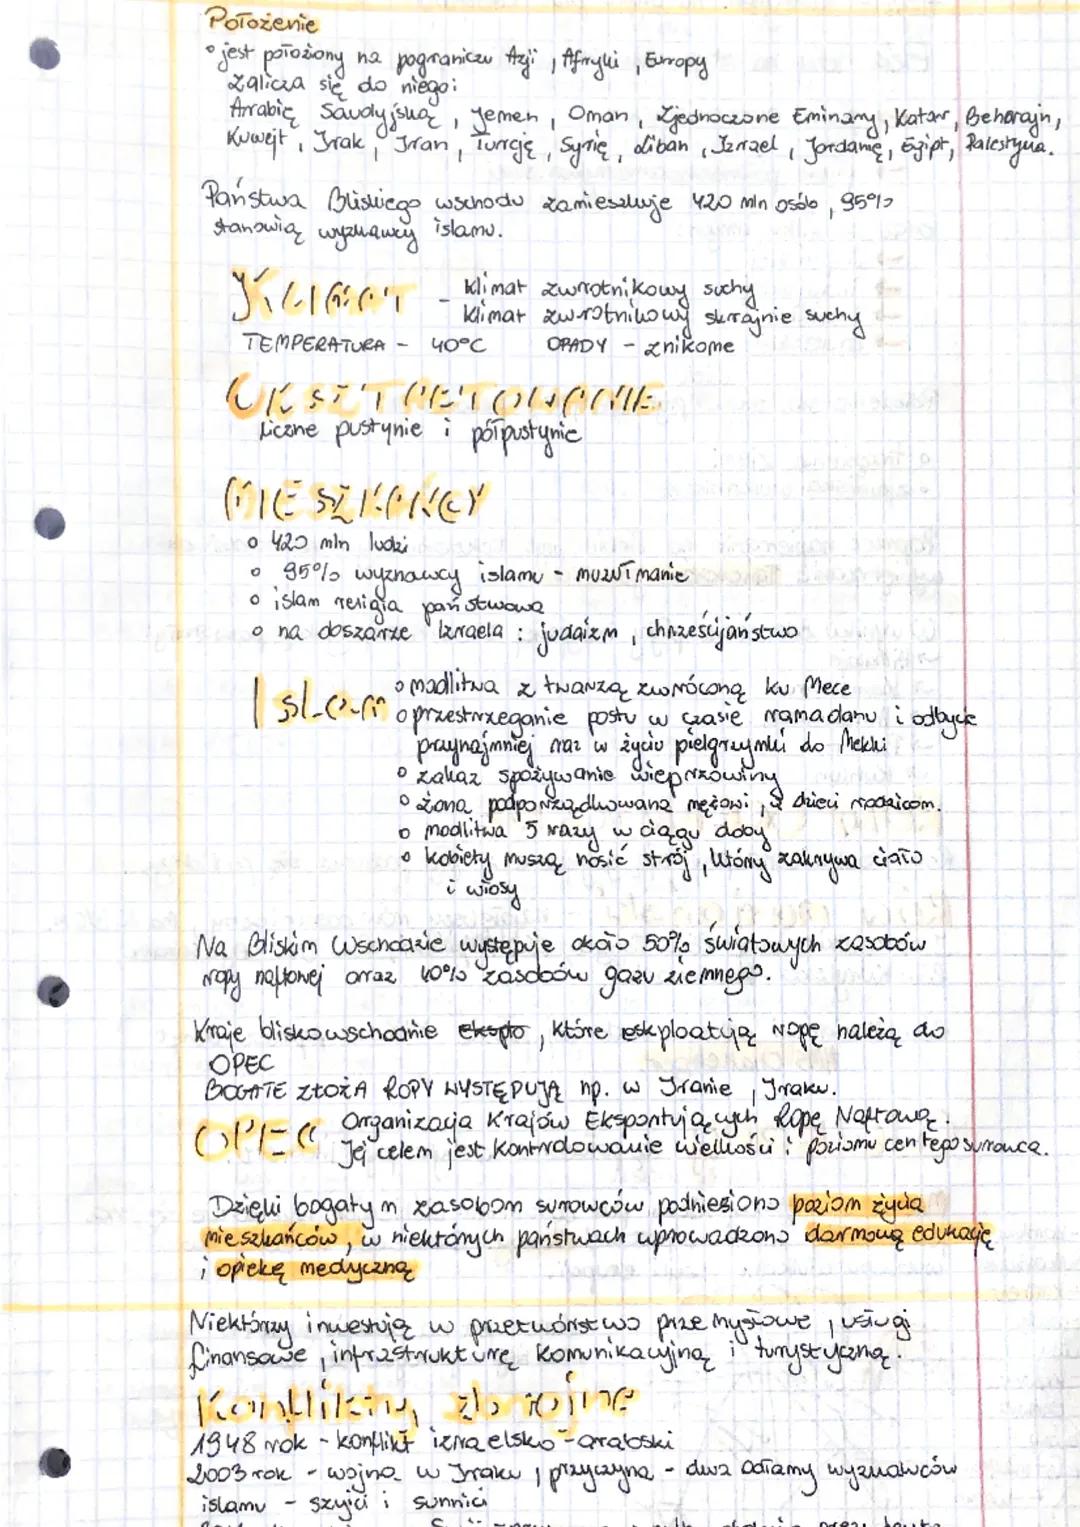 Położenie
° jest położony na pograniczu Azji, Afryki, Europy
zalicza się do niego:
Arrabię Saudyjską, Jemen, Oman, Zjednoczone Eminany, Katar, Beharajn,
Kuwejt, Irak, Iran, Turcję, Syrię, Liban, Izrael, Jordanię, Egipt, Palestyna.
Państwa Bliskiego wschodu zamieszkuje 420 mln osób, 95%
stanowią wyznawcy islamu.
KLIMAT - klimat zwrotnikowy suchy
klimat zwrotnikowy skrajnie suchy
TEMPERATURA - 40°C OPADY - znikome
UKSZTAŁTOWANIE
Liczne pustynie i półpustynie
MIESZKAŃCY
° 420 mln ludzi
° 95% wyznawcy islamu - muzułmanie
° islam religia państwowa
° na obszarze Izraela : judaizm, chrześcijaństwo
Islam ° modlitwa z twarzą zwróconą ku Mece
° przestrzeganie postu w czasie ramadanu i odbycie
przynajmniej raz w życiu pielgrzymki do Mekki
° zakaz spożywanie wieprzowiny
° żona podporządkowana mężowi, a dzieci rodzicom.
° modlitwa 5 razy w ciągu doby
° kobiety muszą nosić strój, który zakrywa ciało
i włosy
Na Bliskim Wschodzie występuje około 50% światowych zasobów
ropy naftowej orraz 40% zasobów gazu ziemnego.
Kraje bliskowschodnie ekspło, które eskploatują ropę należą do
OPEC
BOGATE ZŁOŻA ROPY WYSTĘPUJĄ np. w Iranie, Iraku.
OPEC Organizacja Krajów Eksportujących Ropę Naftową.
Jej celem jest kontrolowanie wielkości i poziomu cen tego surowca.
Dzięki bogatym zasobom surowców podniesiono poziom życia
mieszkańców, w niektórych państwach wprowadzono darmową edukację
i opiekę medyczną
Niektórzy inwestują w przetwórstwo przemysłowe, usługi
finansowe, infrastrukturę komunikacyjną i turystyczną.
Konflikty zbrojne
1948 rok - konflikt izraelsko-araboski
2003 rok - wojna w Iraku, przyczyna - dwa odłamy wyznawców
islamu - szyici i sunnici